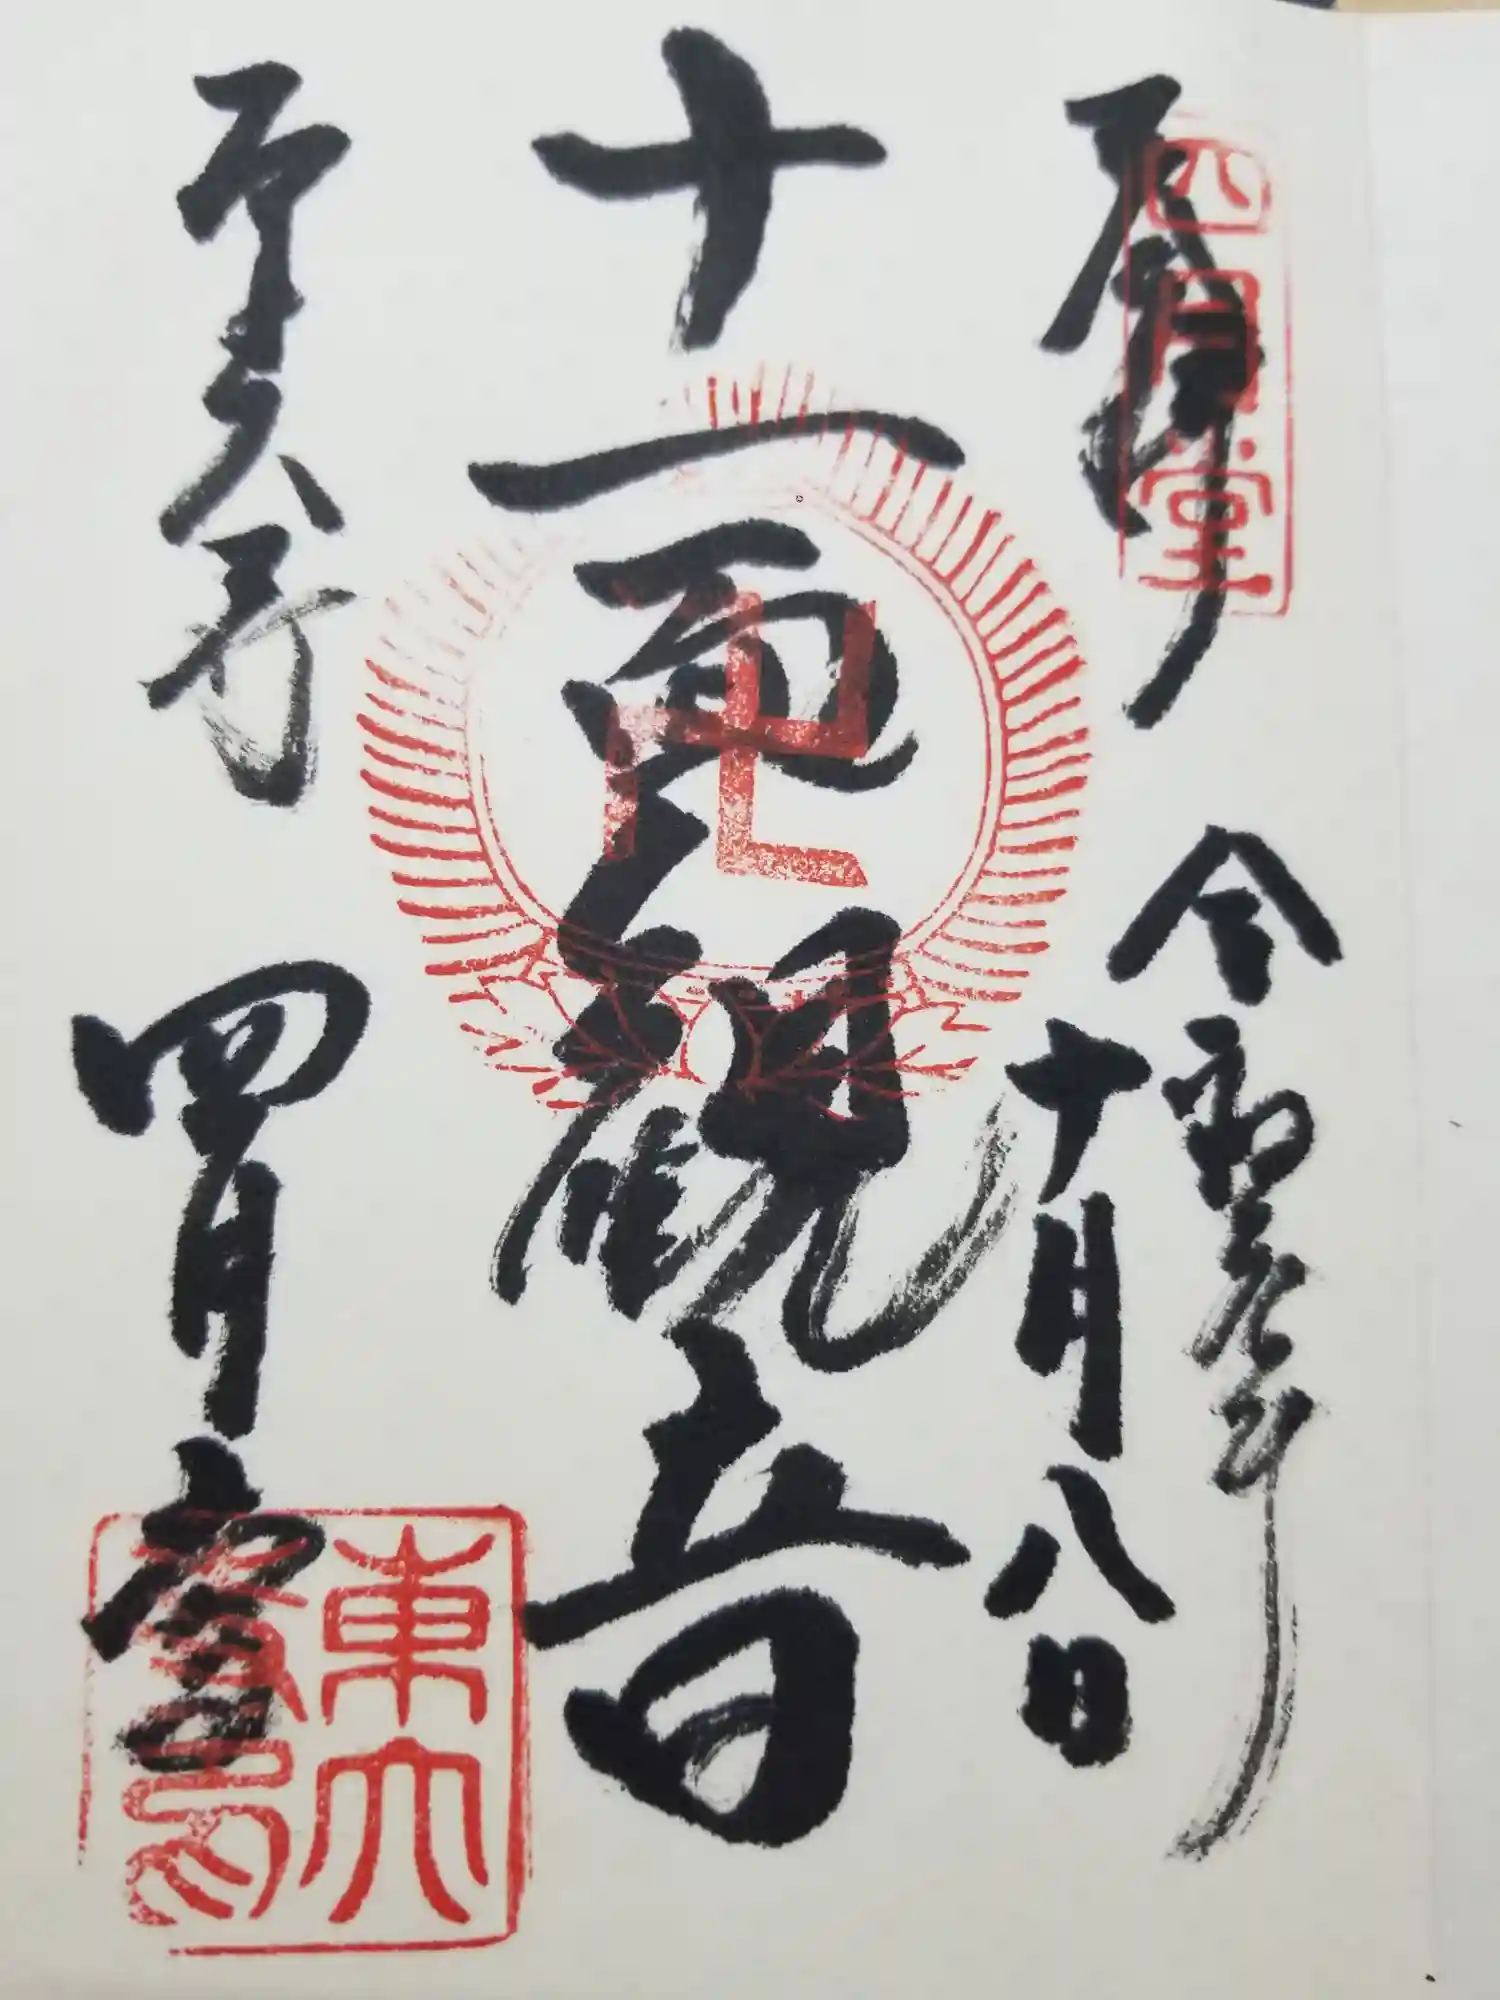 奉拝
四月堂
令和 年
十月八日
十一面観音
東大寺 四月堂
東大
寺印